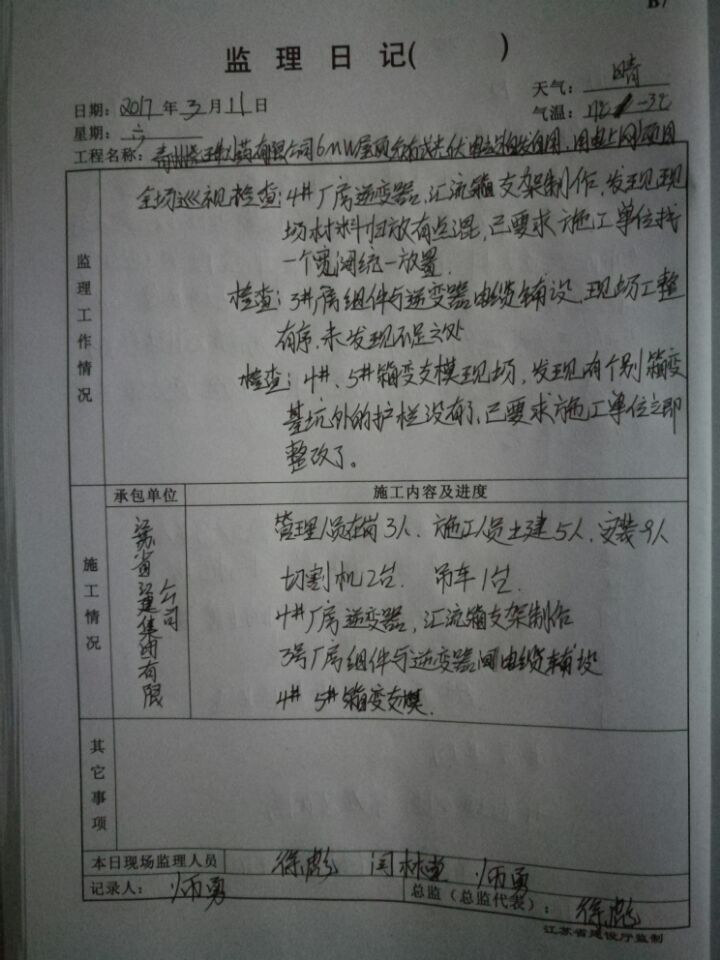 B7
监理日记( )
日期：2017年3月11日
天气：晴
星期：六
气温：-3℃
工程名称：青州 有限公司6MW屋顶分布式光伏电 自用，余电上网项目
监理工作情况
全场巡视检查：4#厂房逆变器，汇流箱支架制作，发现现
场材料归放有点混，已要求施工单位找
一个宽阔统一放置．
检查：3#厂房组件与逆变器电缆铺设，现场工整
有序，未发现不足之处
检查：4#、5#箱变支模现场，发现有个别箱变
基坑外的护栏没有了，已要求施工单位立即
整改了。
承包单位
施工内容及进度
施工情况
江苏省 建集团有限
公司
管理人员在岗3人．施工人员土建5人，安装9人
切割机2台． 吊车1台．
4#厂房逆变器，汇流箱支架制作
3号厂房组件与逆变器间电缆铺设
4# 5#箱变支模．
其它事项
本日现场监理人员
徐彪 闫林 师勇
记录人：师勇
总监（总监代表）：徐彪
江苏省建设厅监制